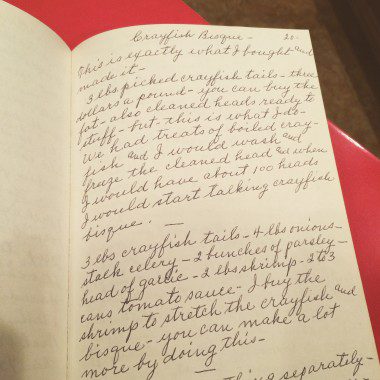 Crayfish Bisque - 20-
This is exactly what I bought and
made it -
3 lbs picked crayfish tails - three
dollars a pound - you can buy the
fat - also cleaned heads ready to
stuff - but - this is what I do -
We had treats of boiled cray-
fish and I would wash and
freeze the cleaned head and when
I would have about 100 heads
I would start talking crayfish
bisque. —
3 lbs crayfish tails - 4 lbs onions -
stalk celery - 2 bunches of parsley -
head of garlic - 2 lbs shrimp - 2 to 3
cans tomato sauce - I buy the
shrimp to stretch the crayfish and
bisque - you can make a lot
more by doing this -
thing separately -